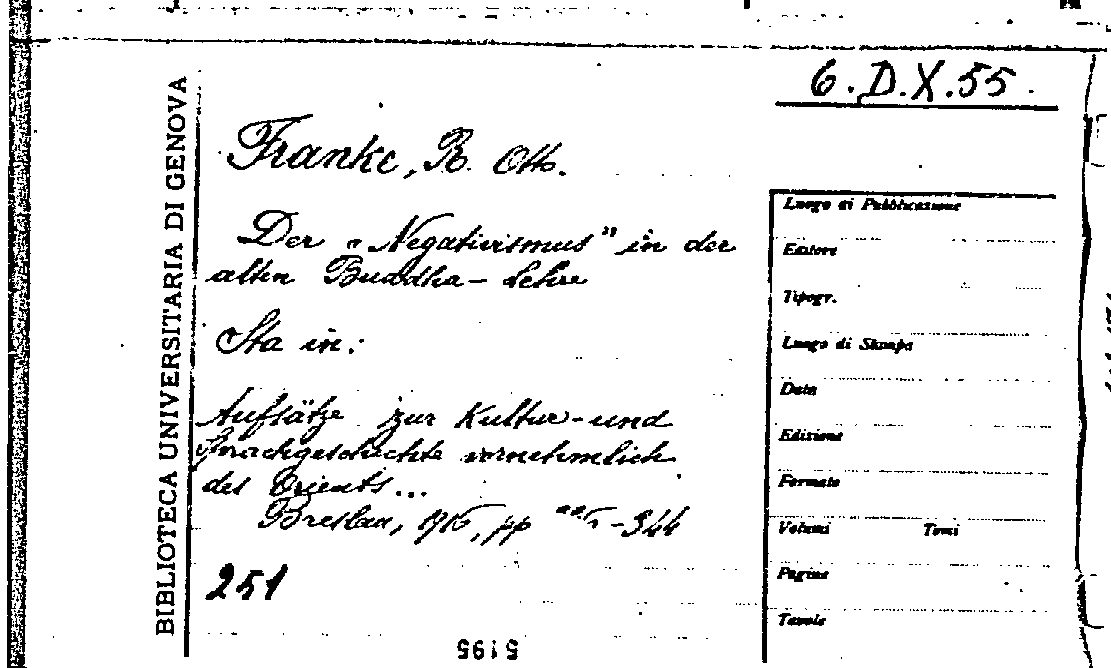 6.D.X.55.
BIBLIOTECA UNIVERSITARIA DI GENOVA
Franke, R. Otto.
Der „Negativismus" in der
alten Buddha-Lehre
Sta in:
Aufsätze zur Kultur-und
Sprachgeschichte vornehmlich
des Orients...
Breslau, 1916, pp -344
251
5195
Luogo di Pubblicazione
Editore
Tipogr.
Luogo di Stampa
Data
Edizione
Formato
Volumi Tomi
Pagine
Tavole